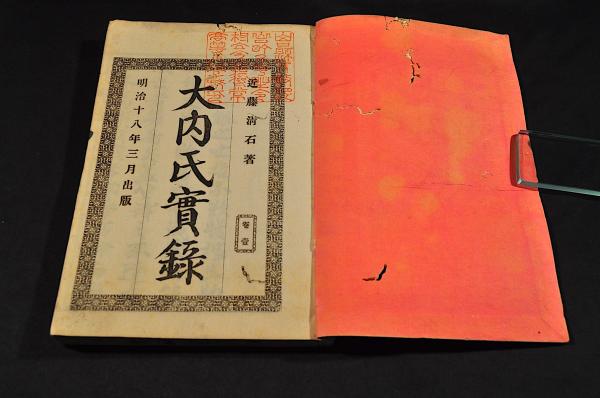 近藤清石著
大内氏實錄
卷壹
明治十八年三月出版